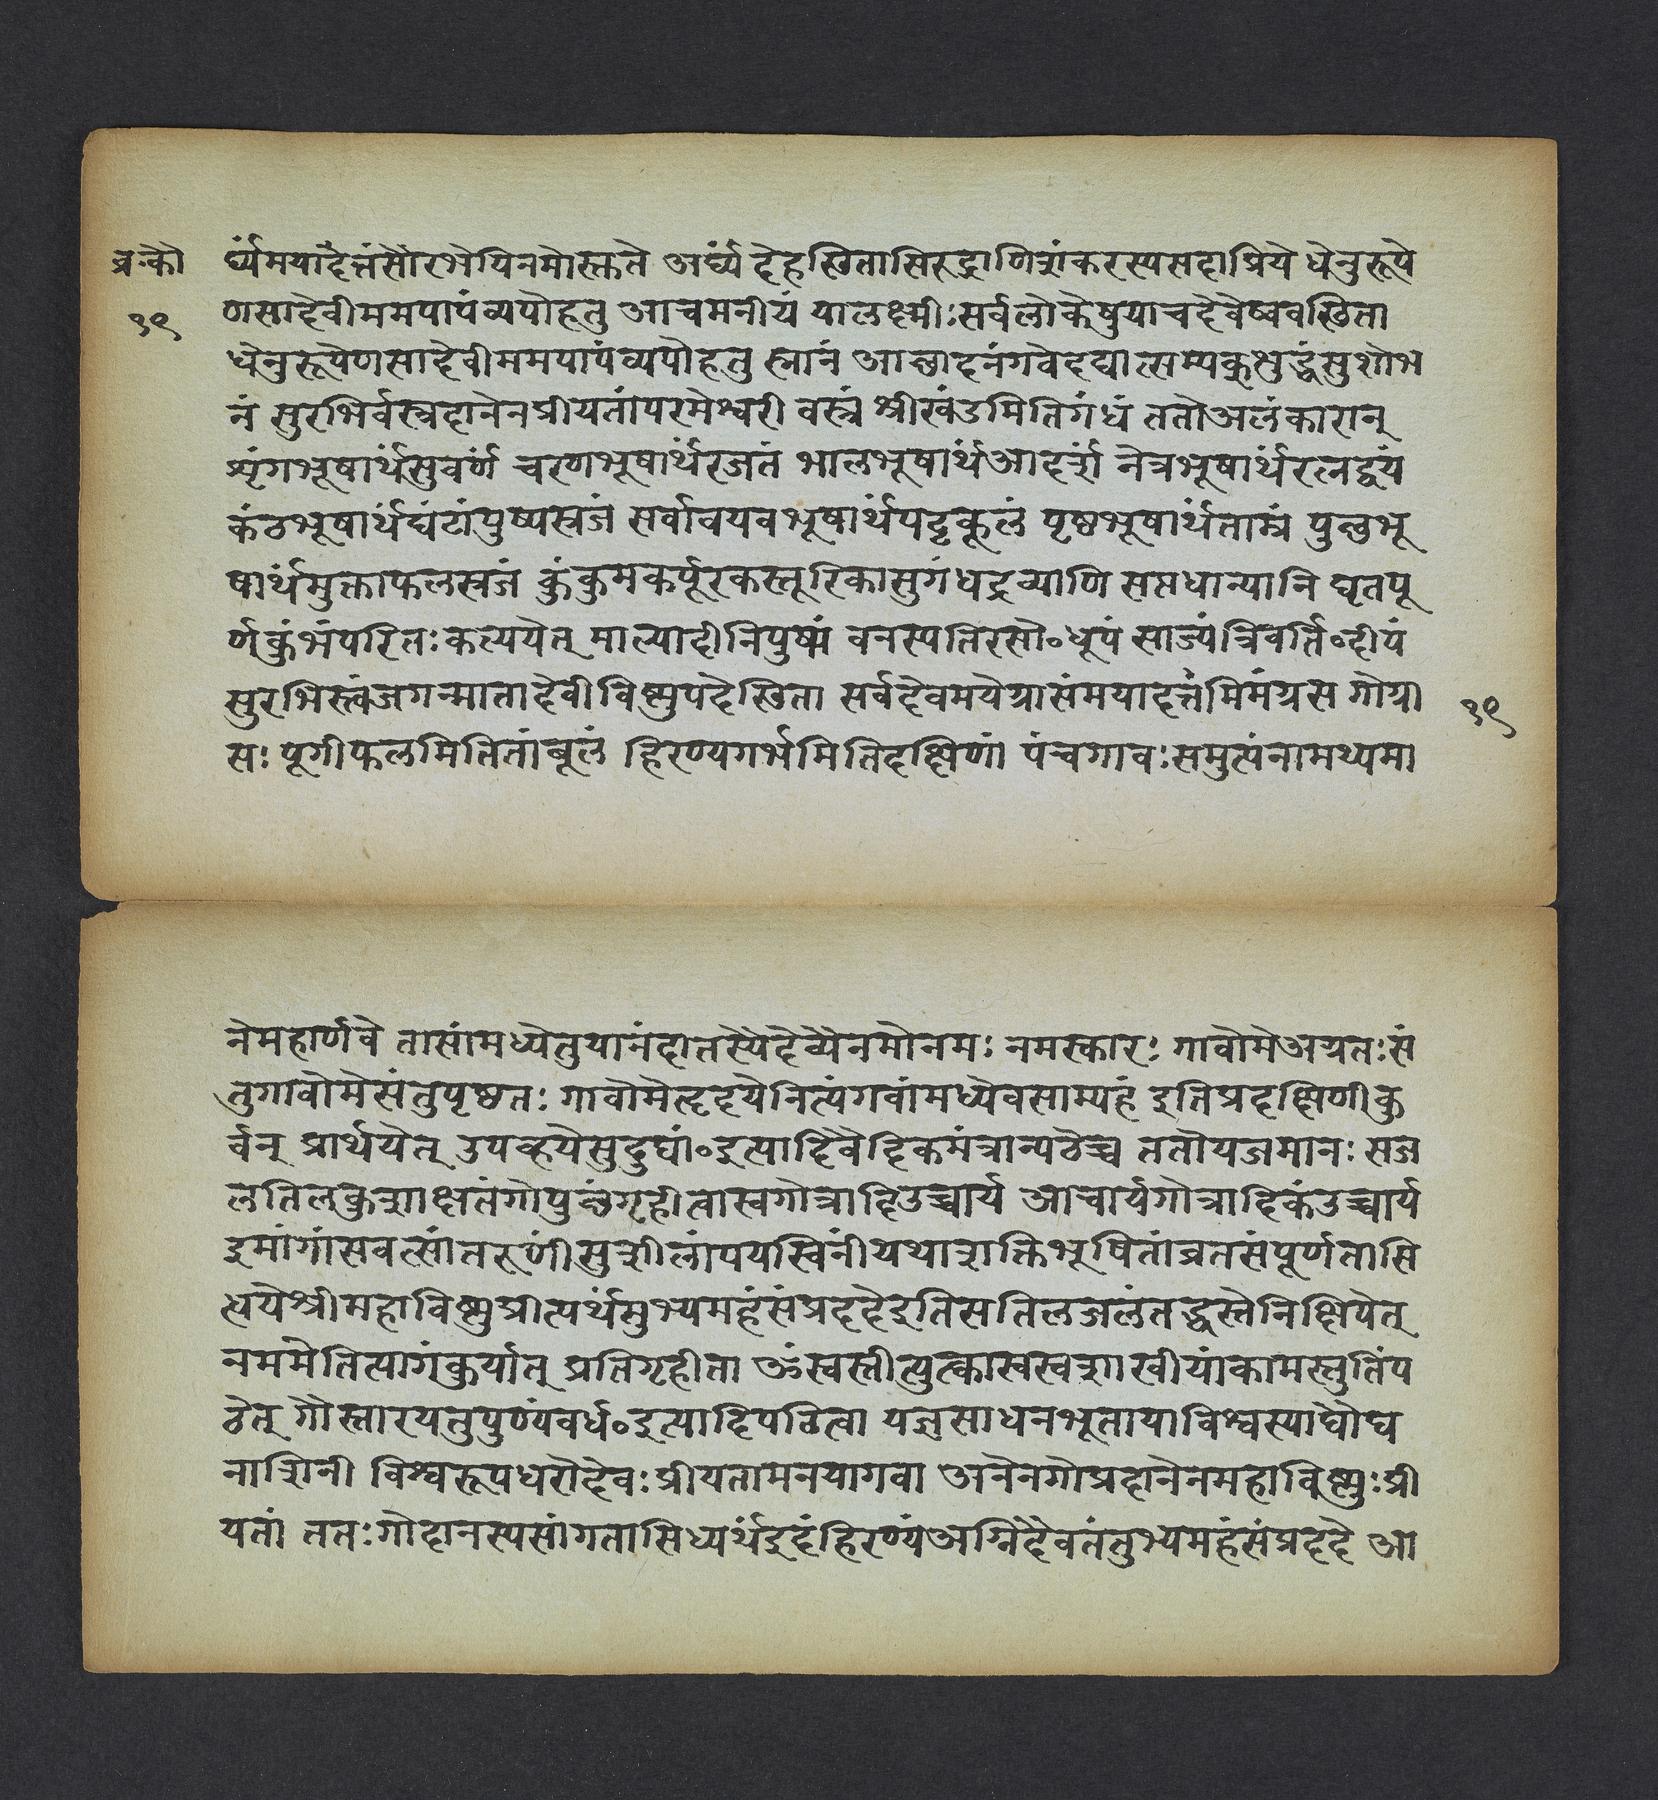 व्र॰कौ
र्घ्यंमयादत्तंसौरभेयिनमोस्तुते अर्घ्यं देहस्थितासिरुद्राणिशंकरस्यसदाप्रिये धेनुरूपे
१९
णसादेवीममपापंव्यपोहतु आचमनीयं यालक्ष्मीःसर्वलोकेषुयाचदेवेष्ववस्थिता
धेनुरूपेणसादेवीममपापंव्यपोहतु स्नानं आछादनंगवेदद्यात्सम्यक्शुद्धंसुशोभ
नं सुरभिर्वस्त्रदानेनप्रीयतांपरमेश्वरी वस्त्रं श्रीखंडमितिगंधं ततोअलंकारान्
शृंगभूषार्थंसुवर्णं चरणभूषार्थंरजतं भालभूषार्थंआदर्शं नेत्रभूषार्थंरत्नद्वयं
कंठभूषार्थंघंटांपुष्पस्रजं सर्वावयवभूषार्थंपट्टकूलं पृष्ठभूषार्थंताम्रं पुछभू
षार्थंमुक्ताफलस्रजं कुंकुमकर्पूरकस्तूरिकासुगंधद्रव्याणि सप्तधान्यानि घृतपू
र्णकुंभंपरितःकल्पयेत् माल्यादीनिपुष्पं वनस्पतिरसो॰धूपं साज्यंत्रिवर्ति॰दीपं
सुरभिस्त्वंजगन्मातादेवीविष्णुपदेस्थिता सर्वदेवमयेग्रासंमयादत्तंमिमंग्रस गोग्रा
१९
सः पूगीफलमितितांबूलं हिरण्यगर्भमितिदक्षिणां पंचगावःसमुत्पंनामथ्यमा
नेमहार्णवे तासांमध्येतुयानंदातस्यैदेव्यैनमोनमः नमस्कारः गावोमेअग्रतःसं
तुगावोमेसंतुपृष्ठतः गावोमेत्हृदयेनित्यंगवांमध्येवसाम्यहं इतिप्रदक्षिणीकु
र्वन् प्रार्थयेत् उपव्हयेसुदुघां॰इत्यादिवैदिकमंत्रान्पठेच्च ततोयजमानः सज
लतिलकुशाक्षतंगोपुछंगृहीत्वास्वगोत्रादिउच्चार्य आचार्यगोत्रादिकंउच्चार्य
इमांगांसवत्सांतरुणींसुशीलांपयस्विनींयथाशक्तिभूषितांव्रतसंपूर्णतासि
ध्ययेश्रीमहाविष्णुप्रीत्यर्थंतुभ्यमहंसंप्रददेइतिसतिलजलंतद्धस्तेनिक्षिपेत्
नममेतित्यागंकुर्यात् प्रतिगृहीता ॐस्वस्तीत्युत्क्वास्वस्वशाखीयांकामस्तुतिंप
ठेत् गौस्तारयतुपुण्यंवर्ध॰इत्यादिपठित्वा यज्ञसाधनभूतायाविश्वस्याघौघ
नाशिनी विश्वरूपधरोदेवः प्रीयतामनयागवा अनेनगोप्रदानेनमहाविष्णुःप्री
यतां ततःगोदानस्यसांगतासिध्यर्थंइदंहिरण्यंअग्निदैवतंतुभ्यमहंसंप्रददे आ